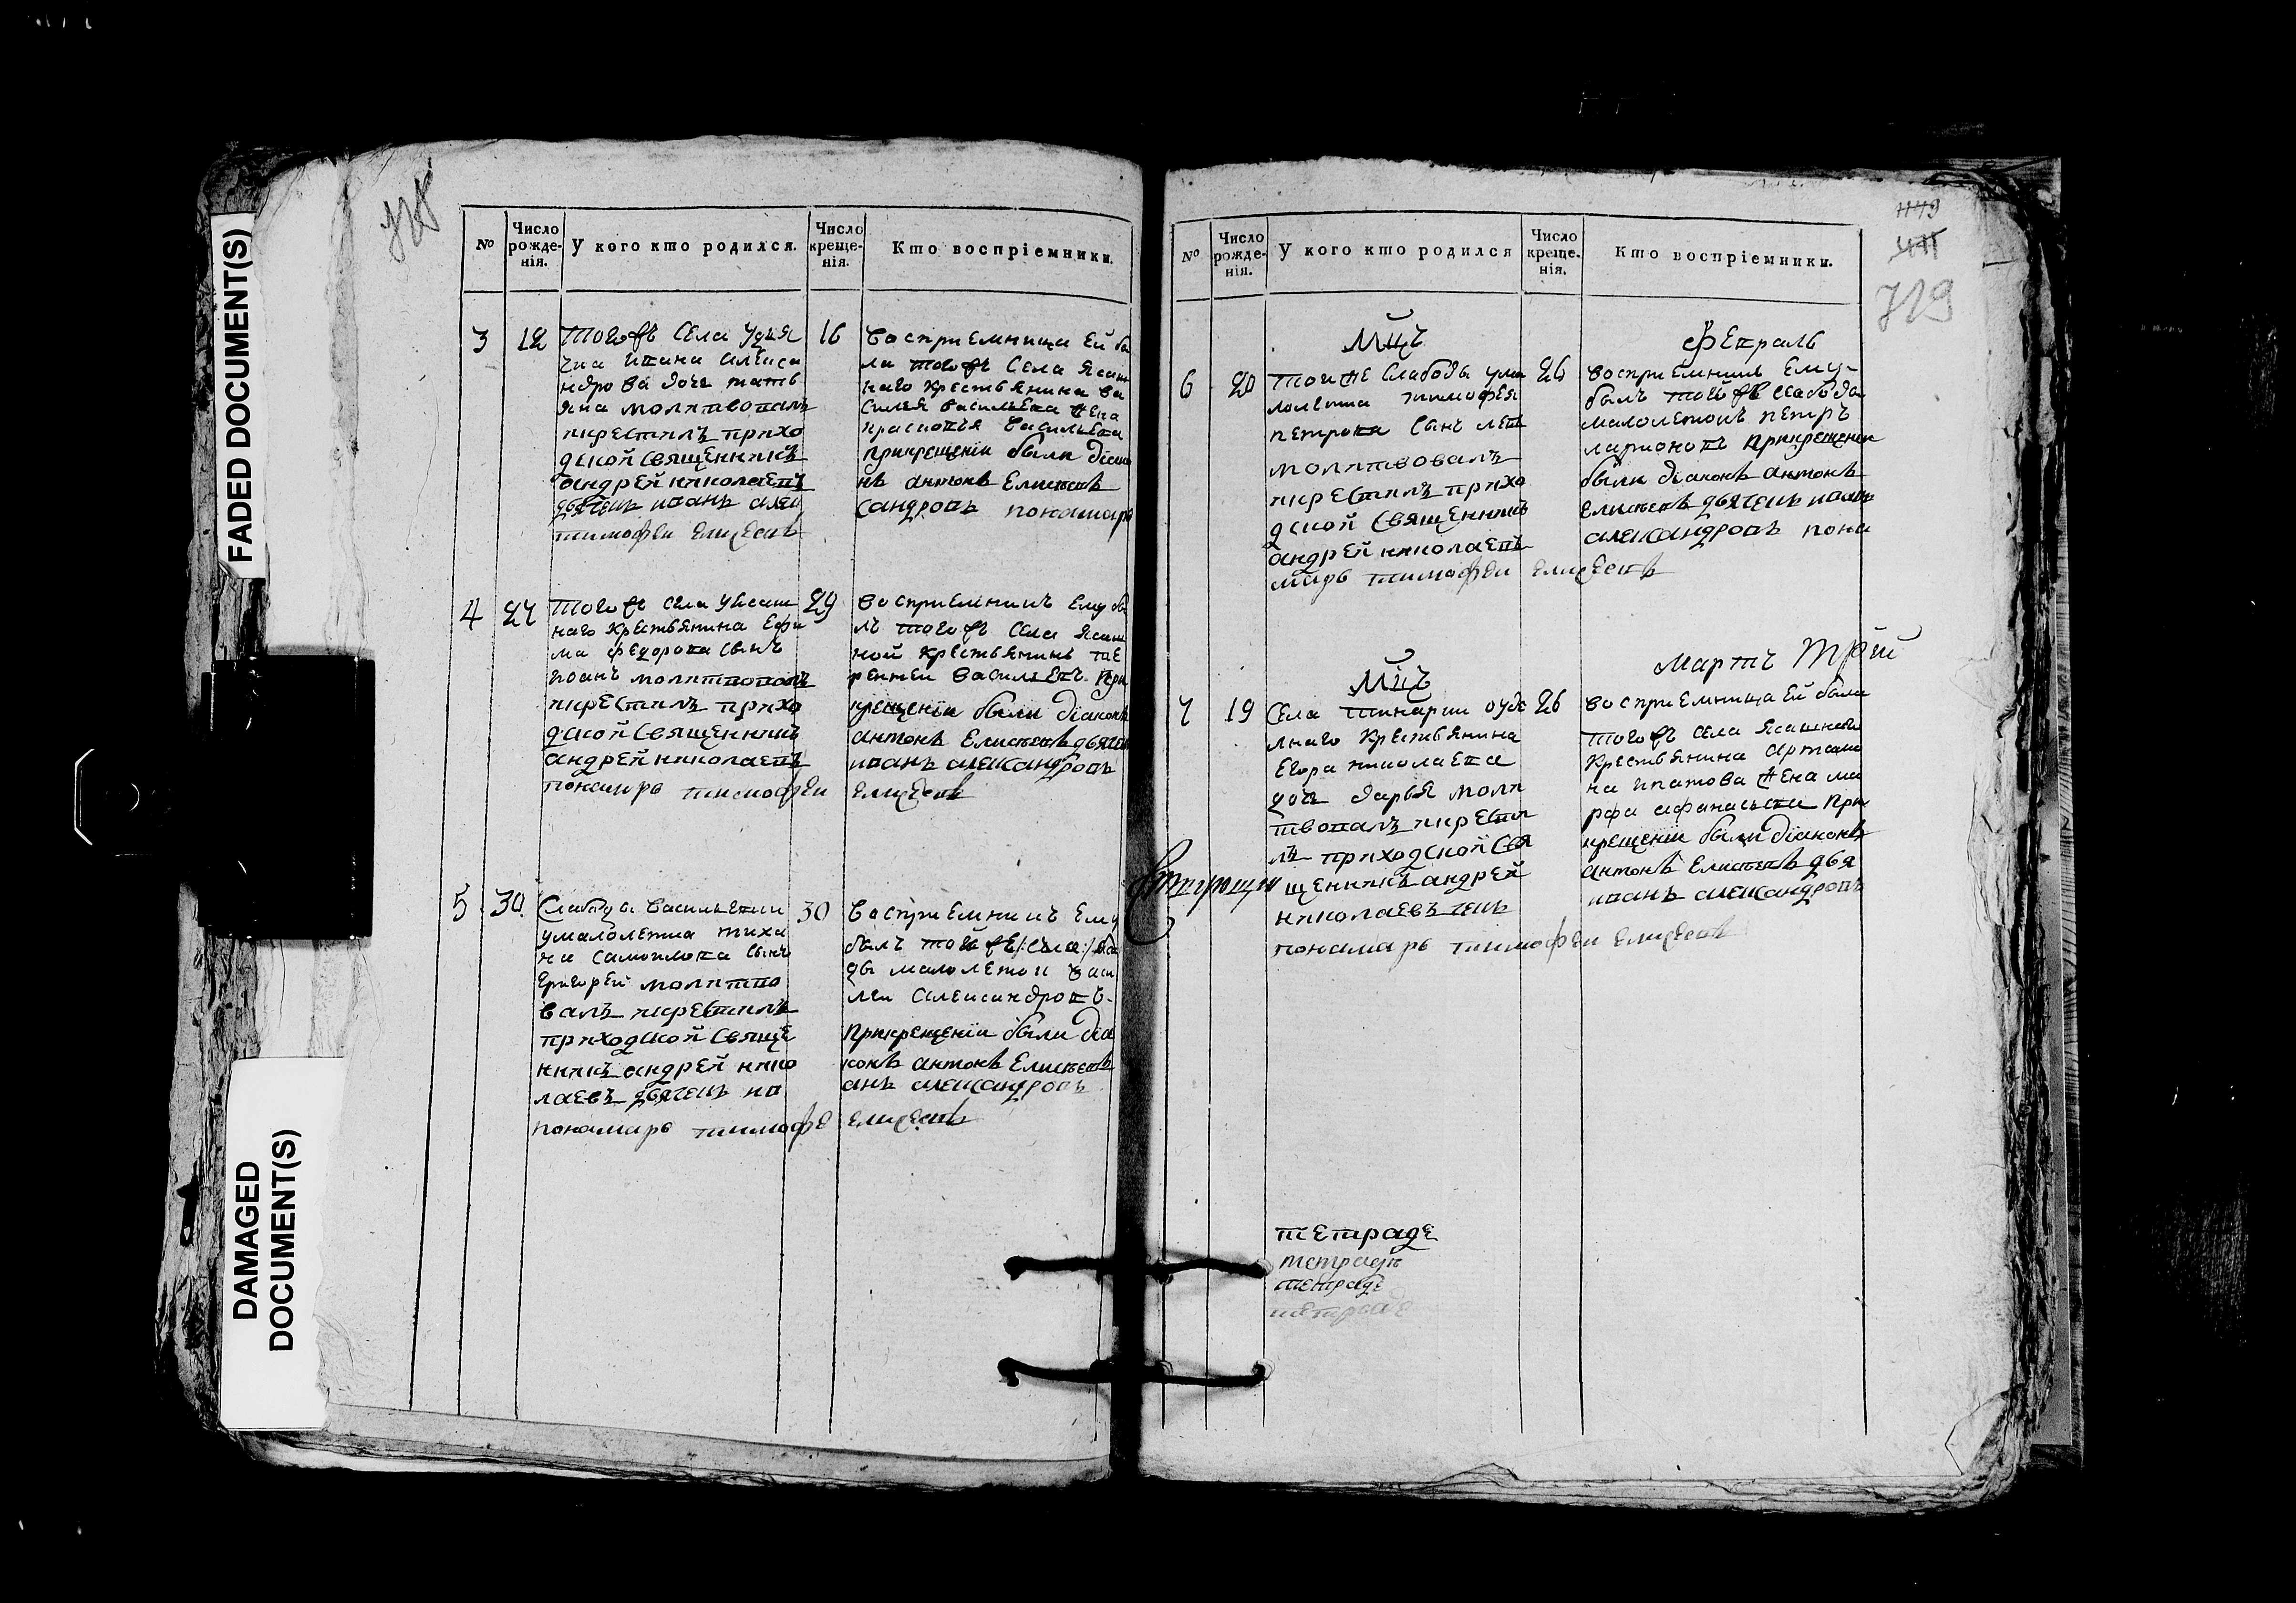 FADED DOCUMENT(S)
DAMAGED
DOCUMENT(S)
№
Число рожде-нія.
У кого кто родился.
Число креще-нія.
Кто воспріемники.
3
12
тогожъ села удья
чка ивана алекса
ндрова дочь тать
яна молитвовалъ
икрестилъ прихо
дской священникъ
андрей николаевъ
дьячекъ иванъ алек
тимофеи елисеевъ
16
воспрiемница ей бы
ла тогожъ села ясаш
наго крестьянина ва
силея васильева жена
васильева
прикрещенiи были дiако
нъ антонъ елисеевъ
сандровъ понамарь
4
27
тогожъ села уясаш
наго крестьянина ефи
ма федорова сынъ
иоанъ молитвовалъ
икрестилъ прихо
дской священникъ
андрей николаевъ
понамарь тимофеи
29
воспрiемникъ ему бы
лъ тогожъ села ясаш
ной крестьянинъ те
рентеи васильевъ при
крещенiи были дiаконъ
антонъ елисеевъ дьячекъ
иванъ александровъ
елисеевъ
5
30
слабоды васильевки
умалолетка тихо
на самойлова сынъ
григорей молитво
валъ икрестилъ
приходской свяще
нникъ андрей нико
лаевъ дьячекъ ив
понамарь тимофе
30
воспрiемникъ ему
былъ той же /:села:/ слабо
ды малолетокъ васи
леи александровъ
прикрещенiи были дiа
конъ антонъ елисеевъ
анъ александровъ
елисеевъ
719
№
Число рожде-нія.
У кого кто родился
Число креще-нія.
Кто воспріемники.
Мцъ
Февраль
6
20
тойже слабоды ума
лолетка тимофея
петрова сынъ левъ
молитвовалъ
икрестилъ прихо
дской священникъ
андрей николаевъ
марь тимофеи елисеевъ
26
воспрiемникъ ему
былъ тойже слабоды
малолетокъ петръ
ларионовъ прикрещенiи
были дiаконъ антонъ
елисеевъ дьячекъ иванъ
александровъ пона
Мцъ
Мартъ
7
19
села тинарки оуде
лнаго крестьянина
егора николаева
дочь дарья моли
твовалъ икрести
лъ приходской свя
щенникъ андрей
николаевъ чекъ
понамарь тимофеи елисеевъ
26
воспрiемница ей была
тогожъ села ясашнаго
крестьянина артамо
на ипатова жена ма
рфа афанасьева при
крещенiи были дiаконъ
антонъ елисеевъ дья
иванъ александровъ
тетраде
тетради
тетраде
тетраде